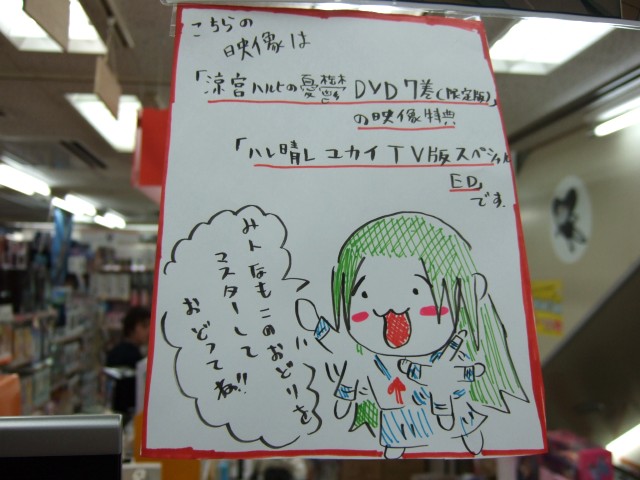 こちらの
映像は
「涼宮ハルヒの憂鬱 DVD 7巻(限定版)」
の映像特典
「ハレ晴レユカイTV版スペシャル
ED」
です
みんなもこのおどりを
マスターして
おどってね!!